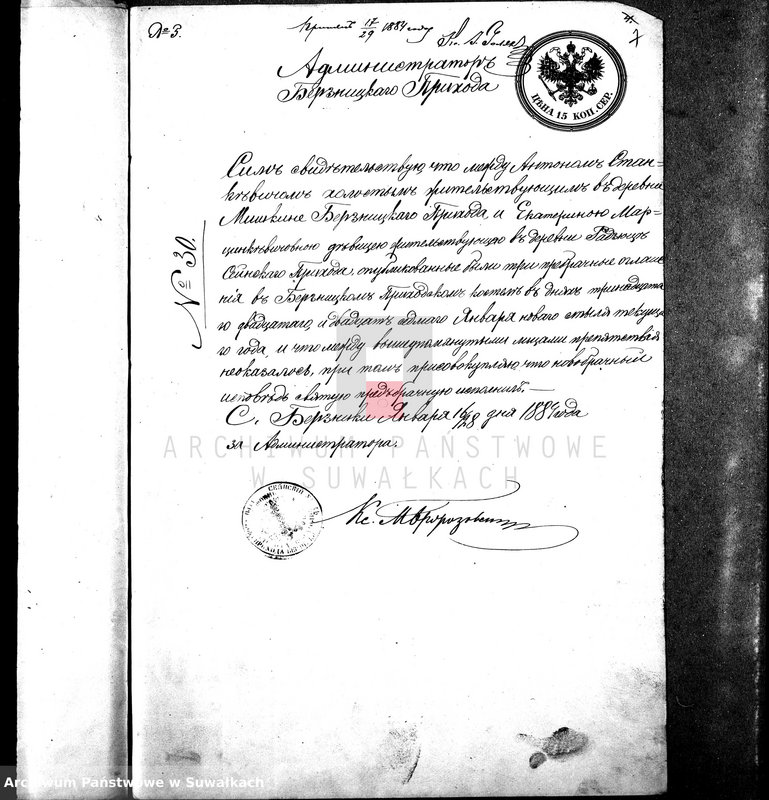 № 3.
17/29 1884 году
7
Администраторъ
Берзницкаго Прихода
ЦѢНА 15 КОП. СЕР.
№ 30.
Симъ свидѣтельствую что между Антономъ Стан=
кѣвичомъ холостымъ жительствующимъ въ деревни
Мишкине Берзницкаго Прихода, и Екатериною Мар=
цинкѣвичовною дѣвицею жительствующею въ деревни
Сейнскаго Прихода, опубликованные были три предбрачные оглаше
нія въ Берзницкомъ Приходскомъ костелѣ въ дняхъ тринадцата
го двадцатаго, и двадцать седмаго Января новаго стиля текуща
го года, и что между вышепомянутыми лицами препятствій
неоказалось, при томъ присовокупляю, что новобрачный
исповѣдь святую предбрачную исполнилъ. —
С. Берзники Января 16/28 дня 1884 года
за Администратора.
Кс.
ARCHIWUM PAŃSTWOWE
W SUWAŁKACH
Archiwum Państwowe w Suwałkach